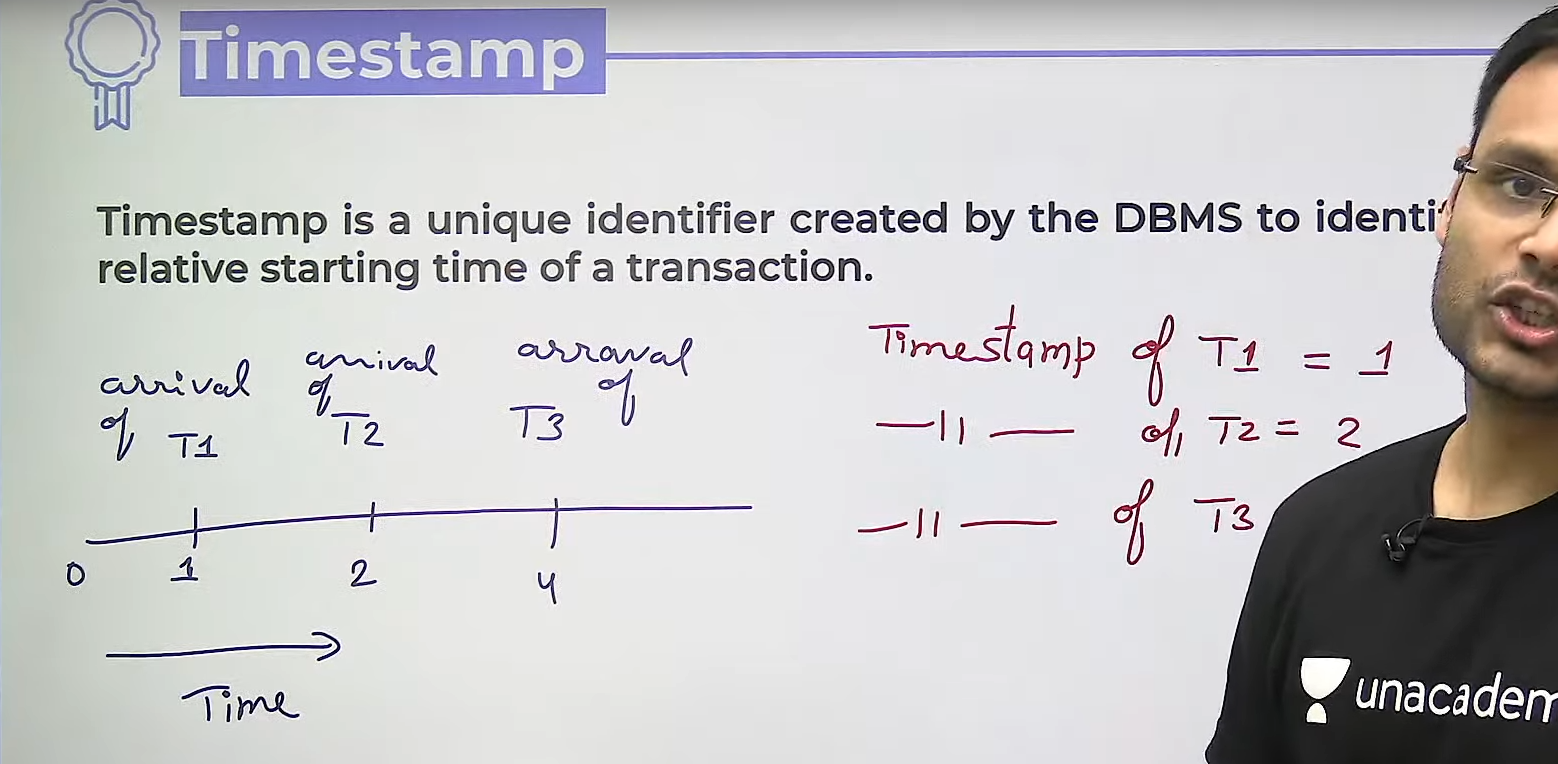 Timestamp
Timestamp is a unique identifier created by the DBMS to identif
relative starting time of a transaction.
arrival
of T1
arrival
of
T2
arraval
of
T3
0 1 2 4
Time
Timestamp of T1 = 1
—11— of, T2 = 2
—11— of T3
unacadem